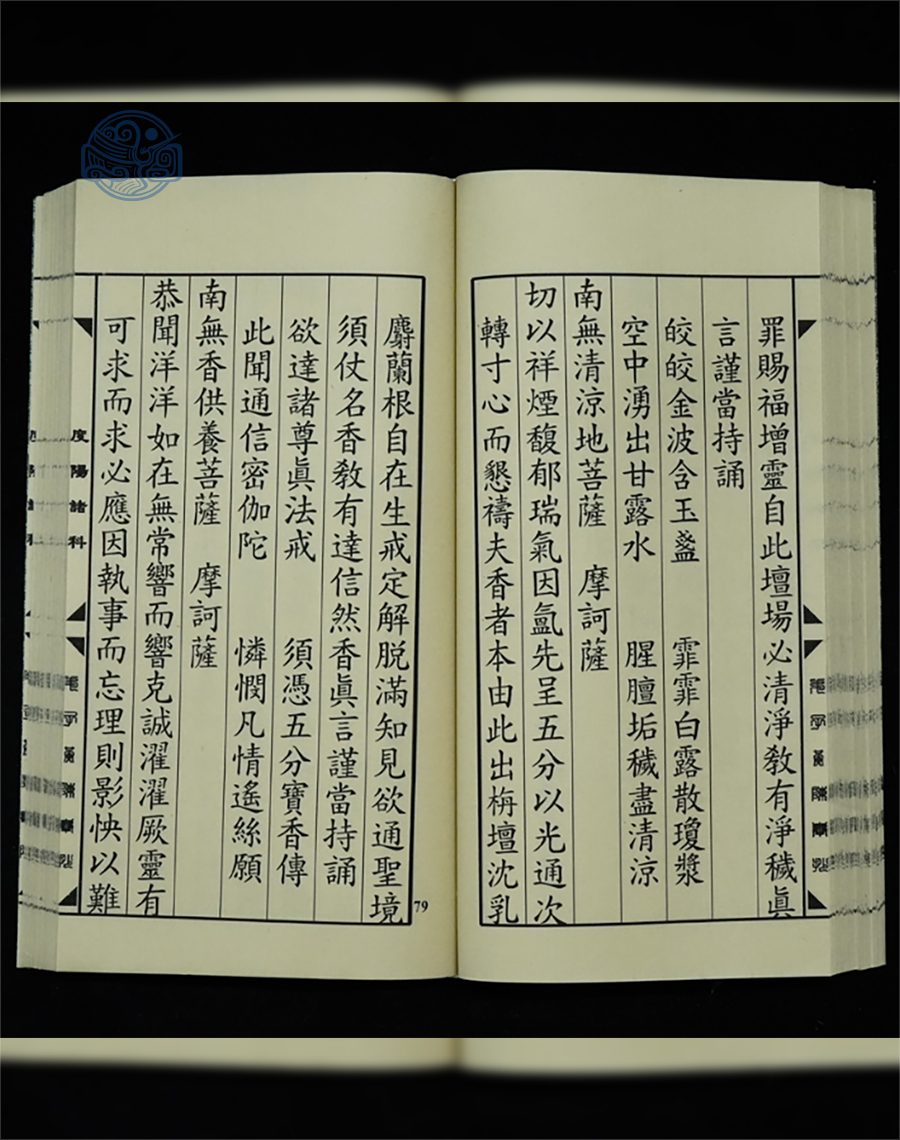 罪賜福增靈自此壇場必清淨教有淨穢眞
言謹當持誦
皎皎金波含玉盞 霏霏白露散瓊漿
空中湧出甘露水 腥膻垢穢盡清涼
南無清涼地菩薩 摩訶薩
切以祥煙馥郁瑞氣因氳先呈五分以光通次
轉寸心而懇禱夫香者本由此出栴壇沈乳
麝蘭根自在生戒定解脫滿知見欲通聖境
須仗名香敎有達信然香眞言謹當持誦
欲達諸尊眞法戒 須憑五分寶香傳
此聞通信密伽陀 憐憫凡情遙絲願
南無香供養菩薩 摩訶薩
恭聞洋洋如在無常響而響克誠濯濯厥靈有
可求而求必應因執事而忘理則影怏以難
度陽諸科
79